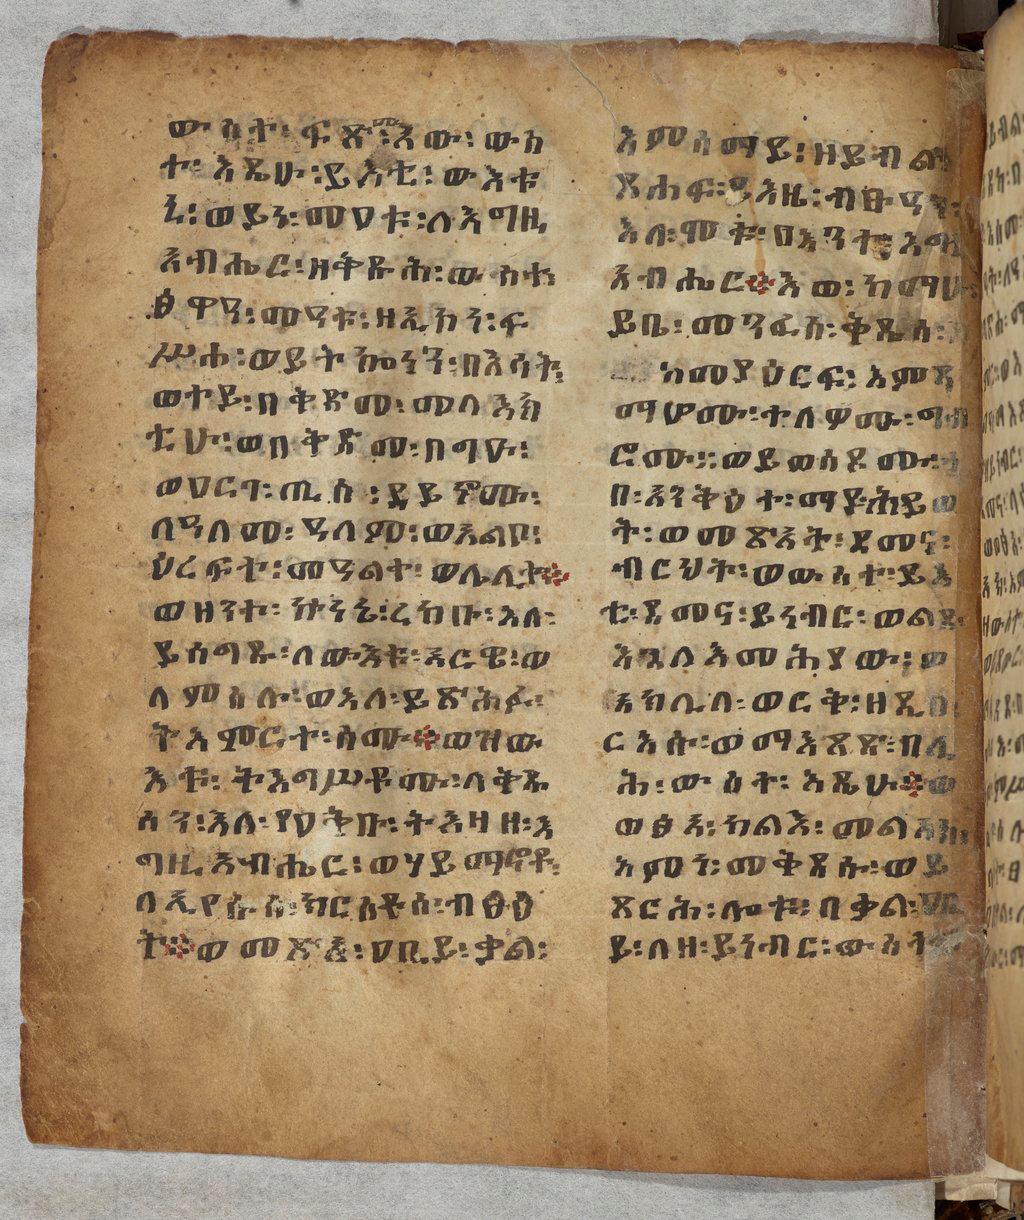 ውስተ፡ ፍጽሞ፡አው፡ ውስ
ተ፡ እዴሁ፡ይእቲ፡ ውእቱ
ኒ፡ወይን፡መዐቱ፡ለእግዚ
አብሔር፡ዘቅዱሕ፡ውስተ፡
ፅዋዓ፡መዓቱ፡ዘኢኮነ፡ፍ
ሥሐ፡ወይትኰነን፡በእሳት፡
ወተይ፡በቅድመ፡መላእክ
ቲሁ፡ወበቅድመ፡በግዑ፡
ወዐርገ፡ጢሰ፡ደይኖሙ፡
ለዓለመ፡ዓለም፡ወአልቦ፡
ዕረፍተ፡መዓልተ፡ወሌሊተ፨
ወዘንተ፡ኵነኔ፡ረከቡ፡እለ፡
ይሰግዱ፡ለውእቱ፡አርዌ፡ወ
ለምስሉ፡ወእለ፡ይጽሕፉ፡
ትእምርተ፡ስሙ፨ወዝው
እቱ፡ትእግሥቶሙ፡ለቅዱ
ሳን፡እለ፡የዐቅቡ፡ትእዛዘ፡እ
ግዚአብሔር፡ወሃይማኖቶ፡
ለኢየሱስ፡ክርስቶስ፡ብፅዕ
ት፨ወመጽአ፡ዐቢይ፡ቃል፡
እምሰማይ፡ዘይብል፡
ጸሐፍ፡ይእዜ፡ብፁዓን፡
እለ፡ሞቱ፡በእንተ፡እግዚ
አብሔር፨እወ፡ከማሁ፡
ይቤ፡መንፈስ፡ቅዱስ፡
ከመያዕርፍ፡እምጻ
ማሆሙ፡ተለዎሙ፡ግብ
ሮሙ፡ወይወስዶሙ፡
በ፡አንቅዕተ፡ማየሕይወ
ት፡ወመጽአት፡ደመና፡
ብርህት፡ወውስተ፡ይእ
ቲ፡ደመና፡ይነብር፡ወልደ፡
እጓለእመሕያው፡ወ
አክሊለ፡ወርቅ፡ዘዲበ፡
ርእሱ፡ወማእጸጽ፡በሊ
ሕ፡ውስተ፡እዴሁ፨ወ
ወፅአ፡ካልእ፡መልአክ፡
እምነ፡መቅደሱ፡ወይ
ጸርሕ፡ሎቱ፡በቃል፡ዐቢ
ይ፡ለዘ፡ይነብር፡ውስተ፡